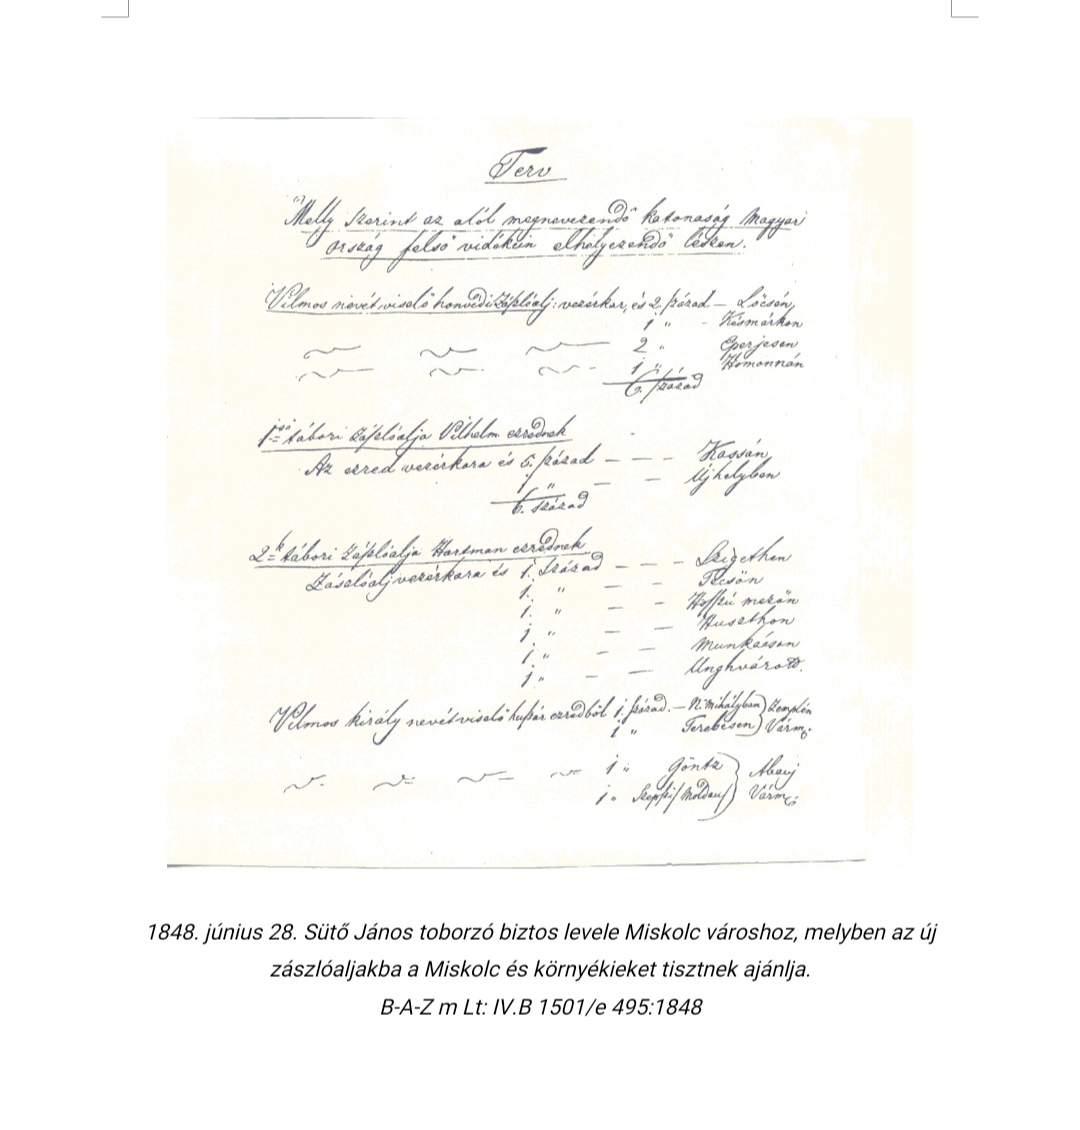 Terv
Melly szerint az alól megnevezendő katonaság Magyar
ország felső vidékein elhelyezendő lészen.
Vilmos nevét viselő honvédi zászlóalj: vezérkar, és 2. század – Lőcsén,
1 " - Késmárkon
2 " Eperjesen
1 " Homonnán
6. század
1ső tábori zászlóalja Vilhelm ezrednek
Az ezred vezérkara és 5. század – – – Kassán,
1 " – – Ujhelyben
6. század
2k tábori zászlóalja Hartman ezrednek
Zászlóalj vezérkara és 1. század – – – Szigethen
1. " – – Técsőn
1. " – – Hosszú mezőn
1 " – – Huszthon
1 " – – Munkácson
1 " – – Unghvárott.
Vilmos király nevét viselő huszár ezredből 1 század. – N. Mihályban) Zemplén
1 " Terebesen) Várm.
1 " Göntz } Abauj
1 " Szepsi/Moldau/ } Várm.
1848. június 28. Sütő János toborzó biztos levele Miskolc városhoz, melyben az új
zászlóaljakba a Miskolc és környékieket tisztnek ajánlja.
B-A-Z m Lt: IV.B 1501/e 495:1848